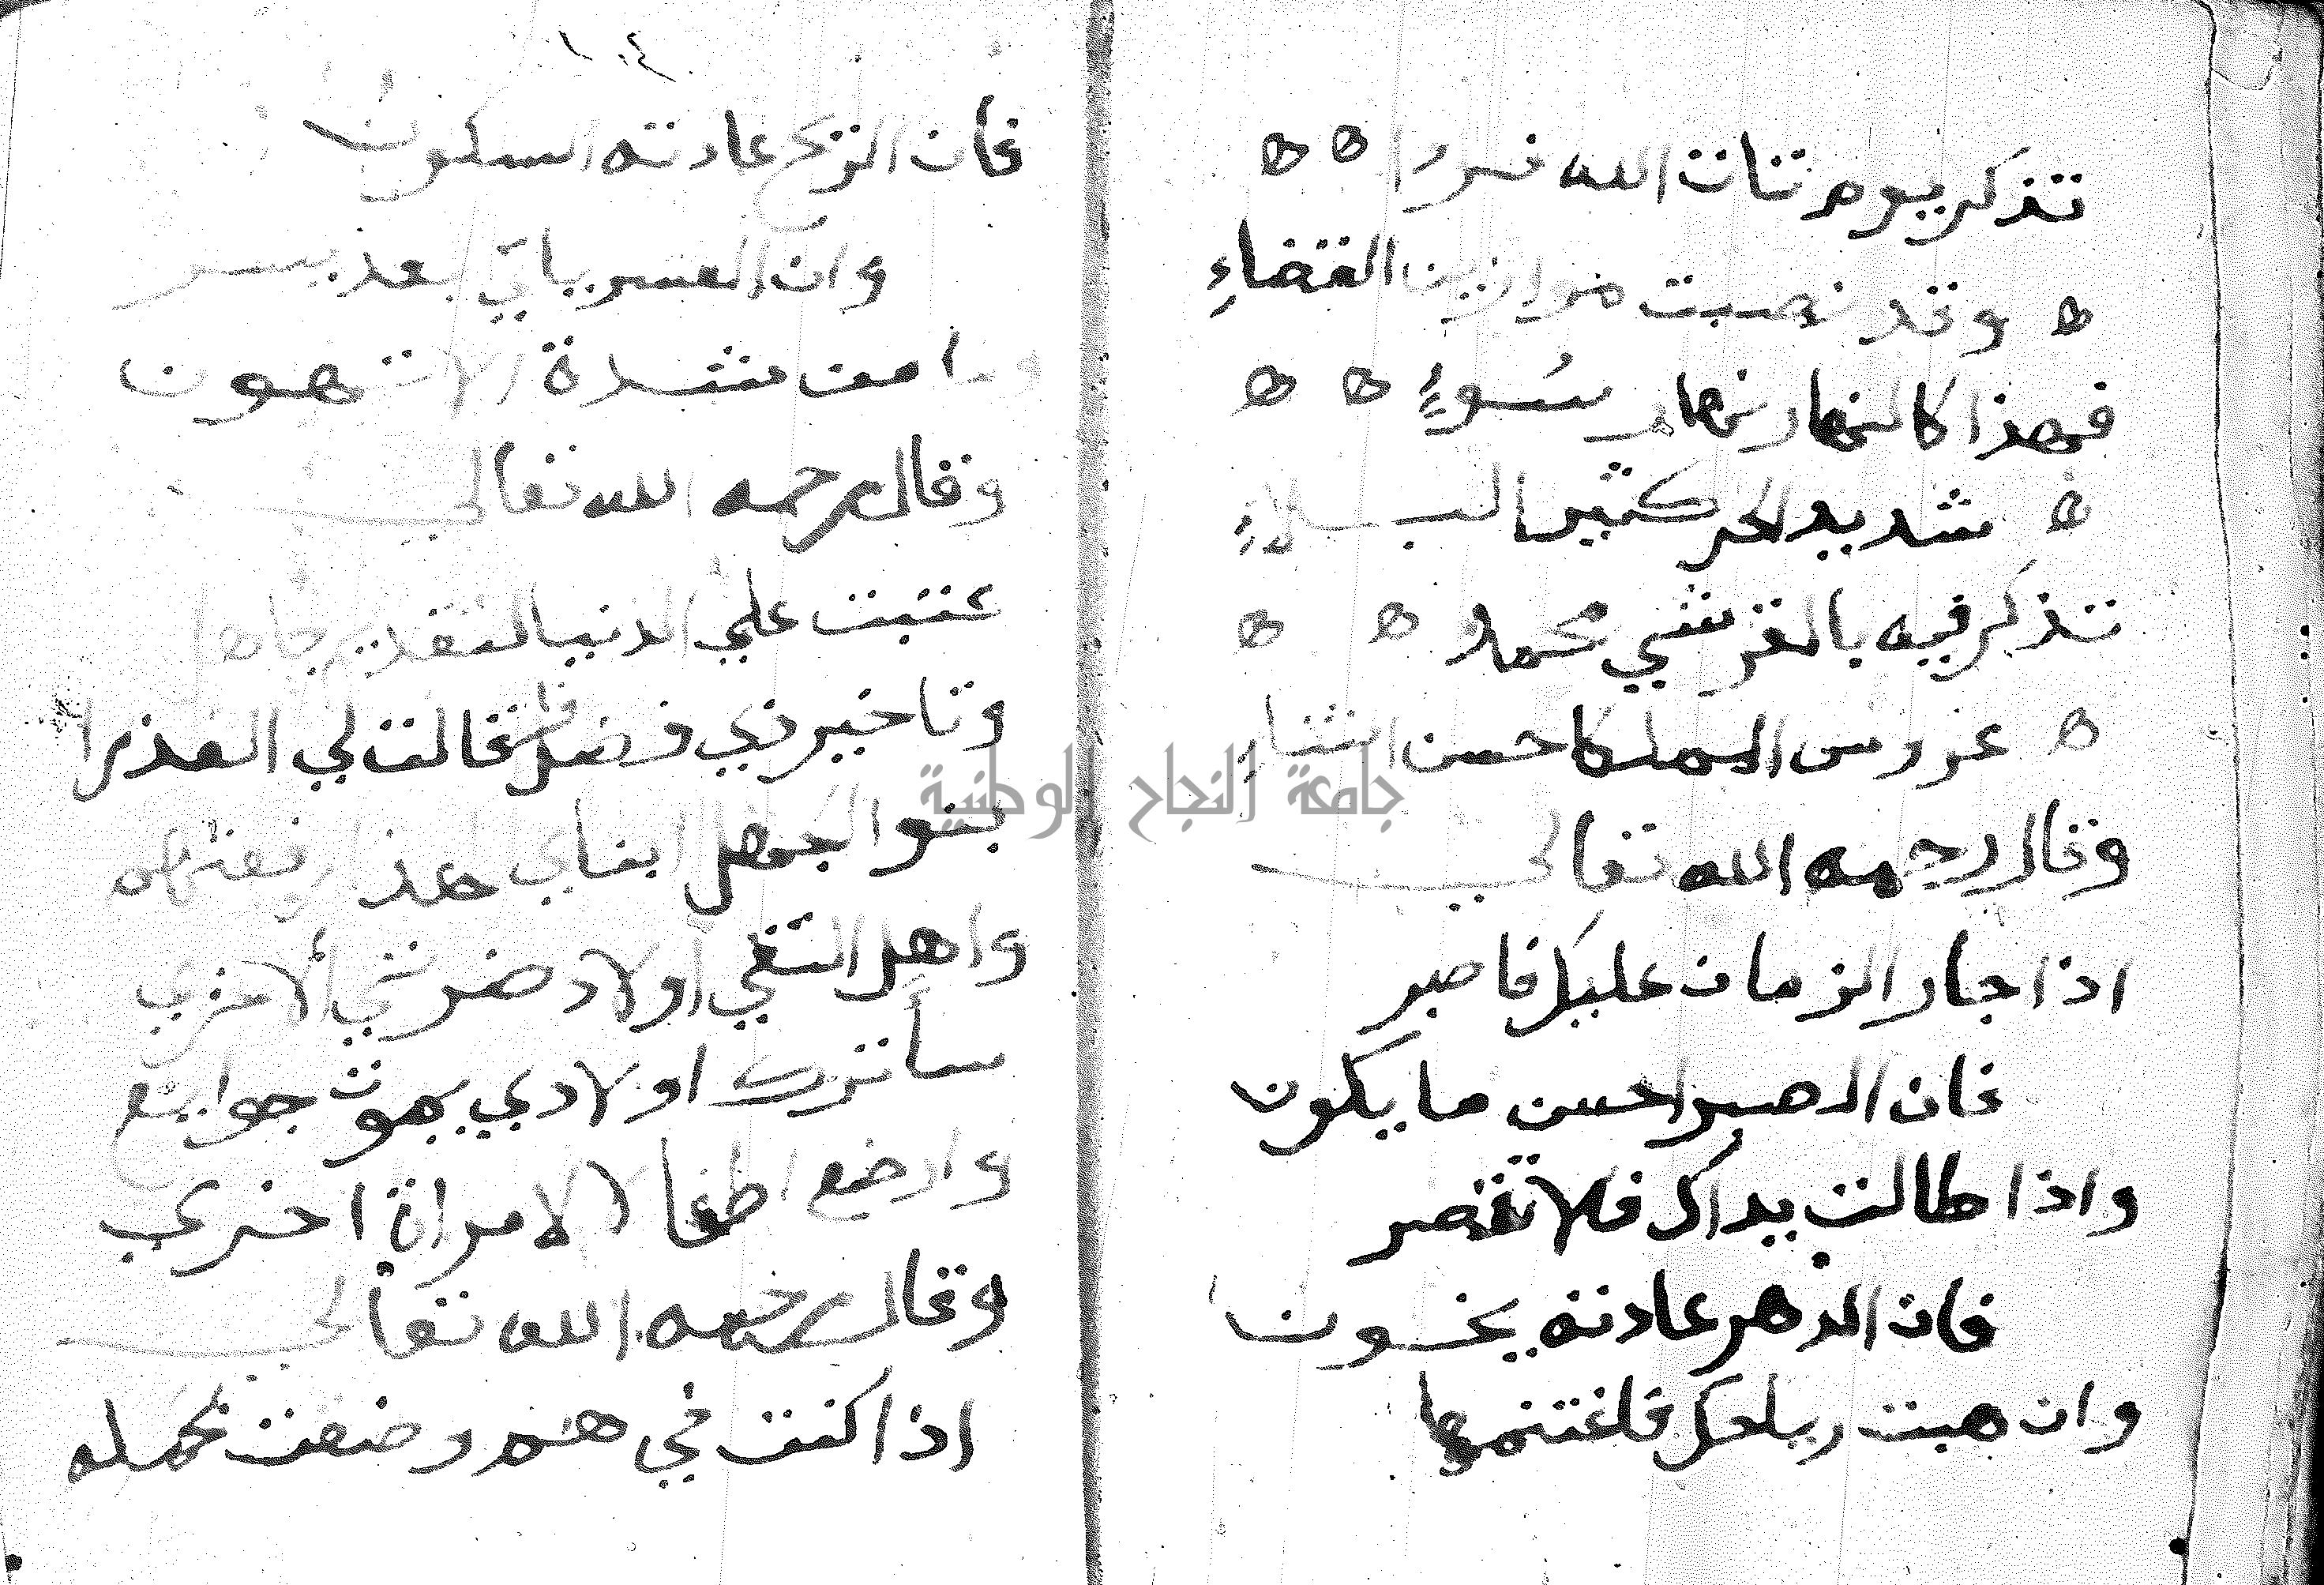 تذكر يوم تات الله فردا ه ه
ه وقد نصبت موازين القضاءِ
فهذا كالنهار نهار سُوءٍ ه ه
ه شديد الحر كثير البلاءِ
تذكر فيه بالقرشي محمد ه ه
ه عروس المملكا حسن الثناءِ
وقال رحمه الله تعالى
اذا جار الزمان عليك فاصبر
فان الصبر احسن ما يكون
واذا طالت يداك فلا تقصر
فان الدهر عادته يخون
وان هبت رياحك فاغتنمها
جامعة النجاح الوطنية
١٠٤
فان الريح عادته السكون
وان العسر ياتي بعد يسر
وما من شدة الا تهون
وقال رحمه الله تعالي
عتبت علي الدنيا لتقديم جاهل
وتاخير ذي فضل فقالت لي العذرا
بنو الجهل ابناي لهذا رفعتهم
واهل التقي اولاد ضرتي الاخري
سأترك اولادي يموت جوايع
وارضع اطفالا لامراة اخري
وقال رحمه الله تعالي
اذا كنت في هم وضقت بحمله